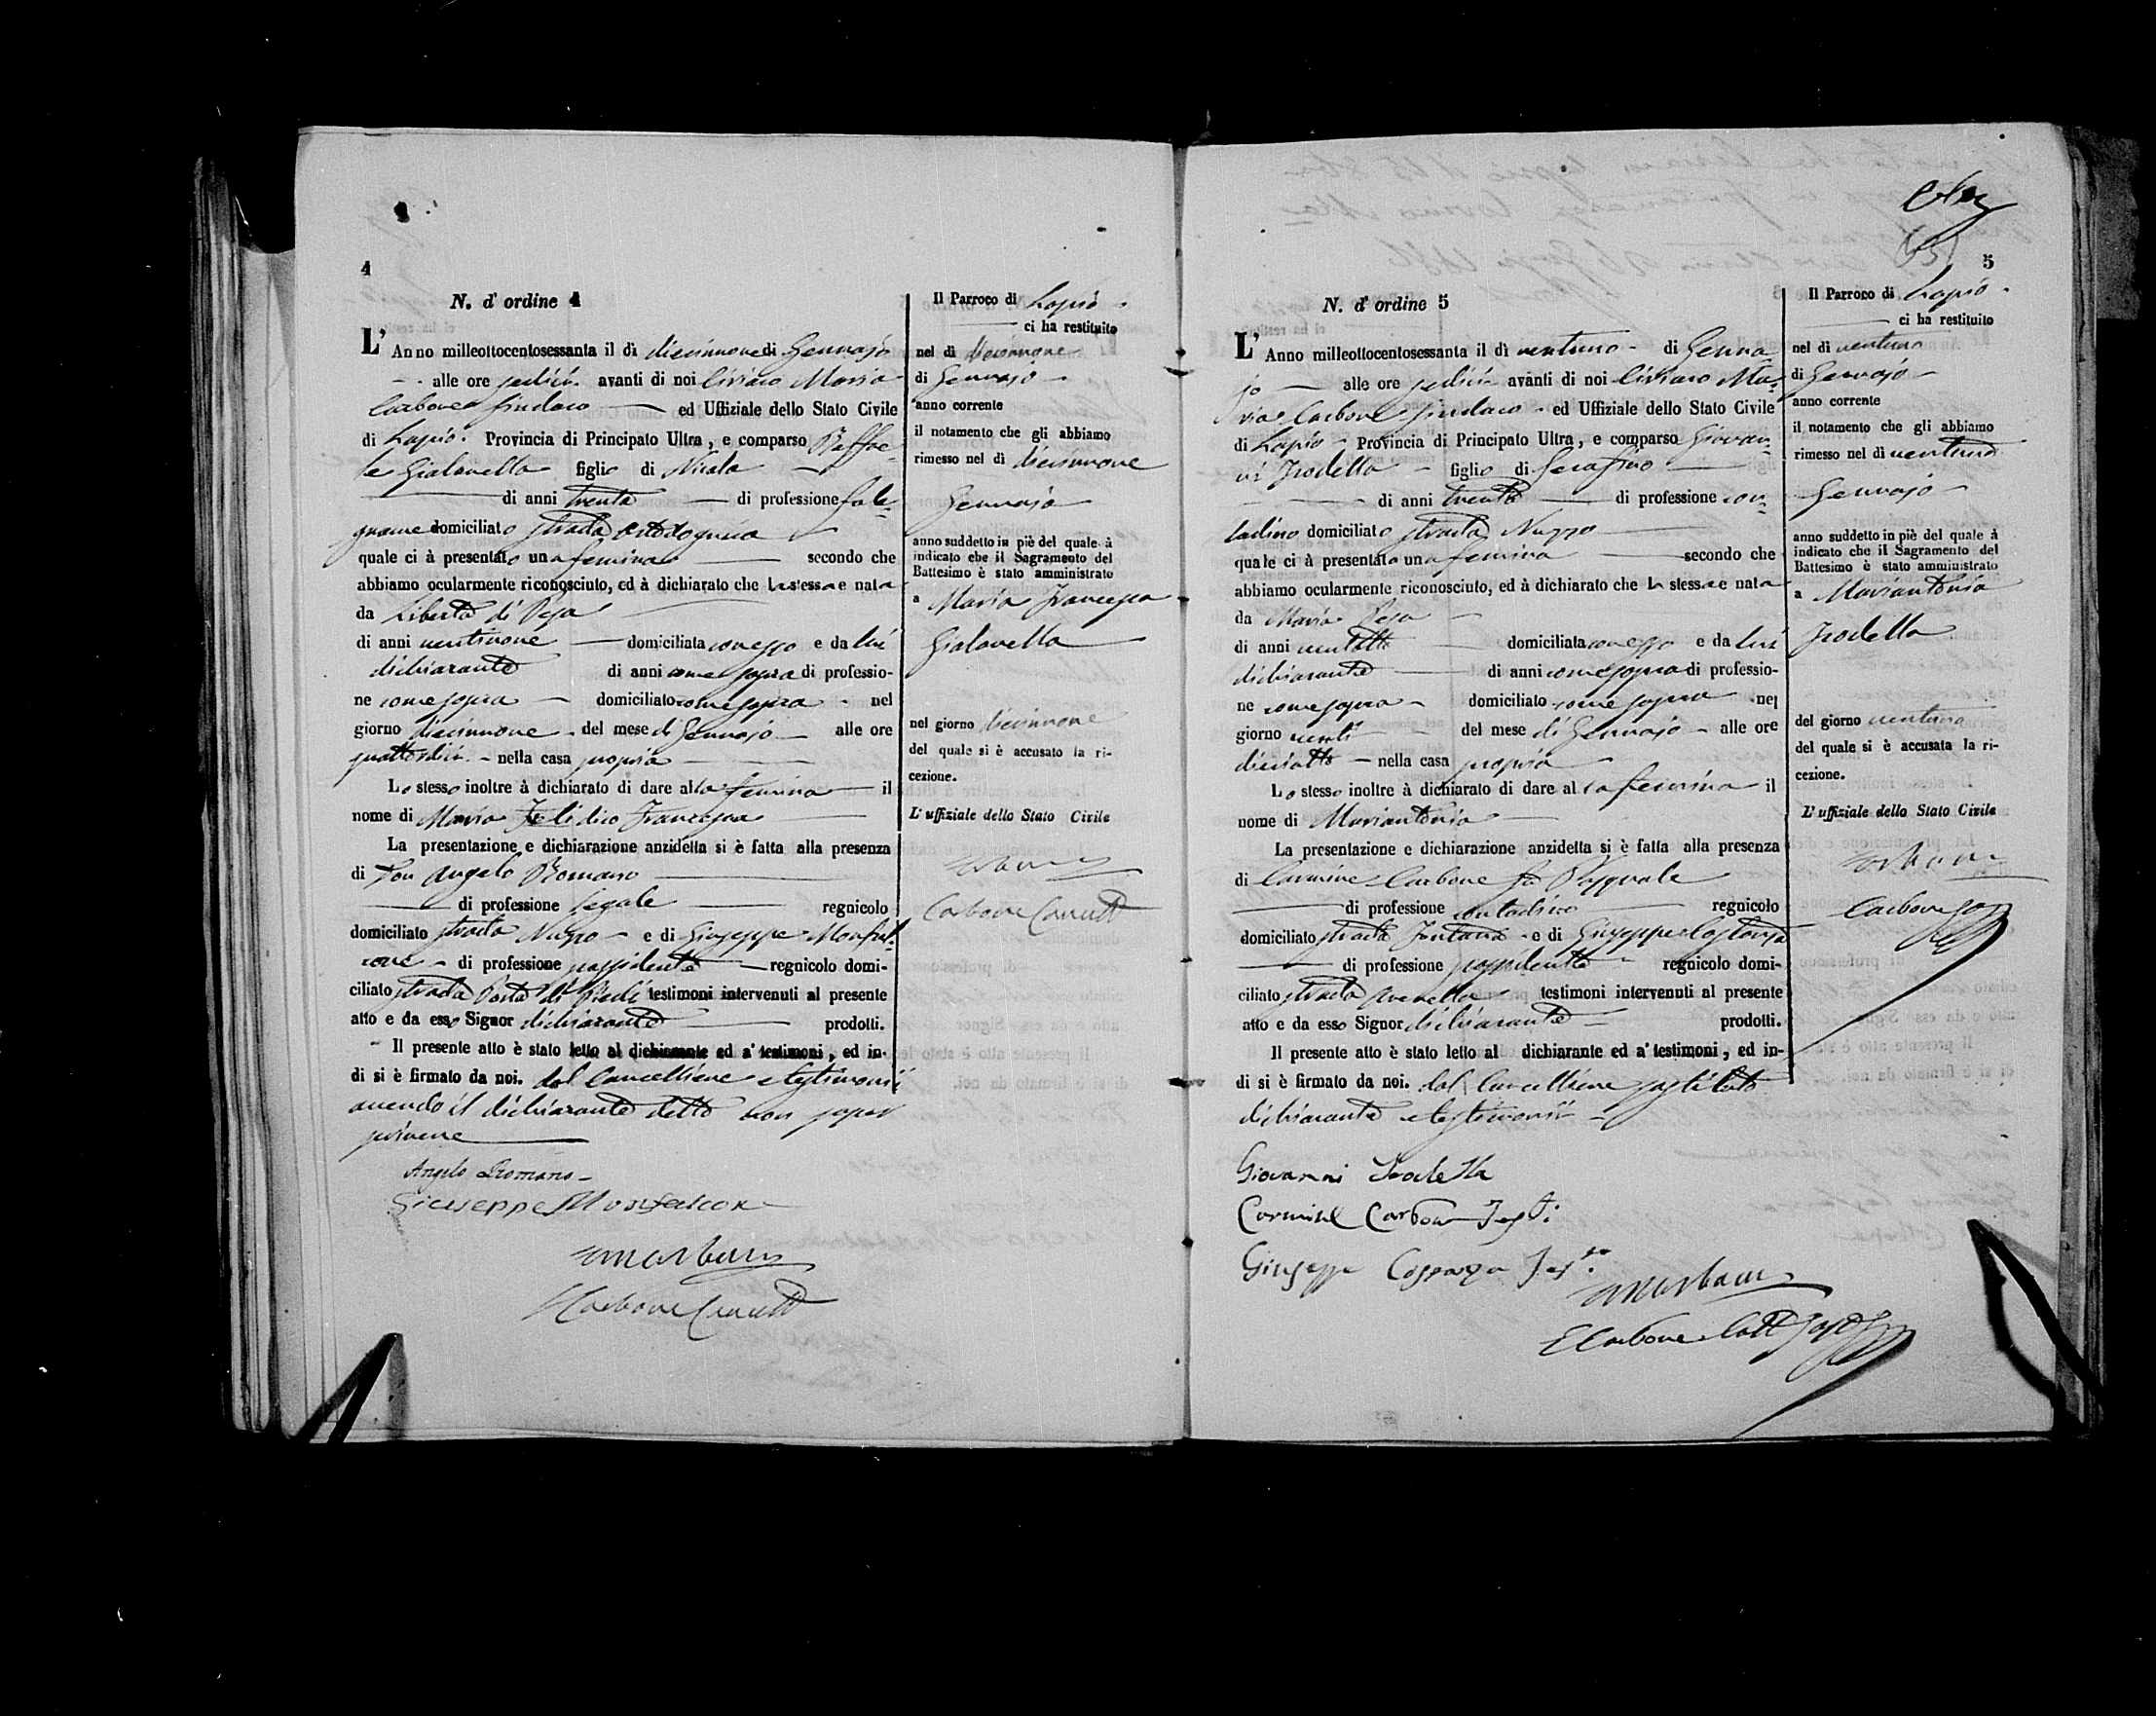 4
N. d' ordine 4
L' Anno milleottocentosessanta il dì diecinnove di Gennajo
alle ore sedici avanti di noi Ciriaco Maria
Carbone Sindaco ed Uffiziale dello Stato Civile
di Lapio. Provincia di Principato Ultra, e comparso Raffae-
le Gialanella figlio di Nicola
di anni trenta di professione fale-
gname domiciliato strada
quale ci à presentato una femina secondo che
abbiamo ocularmente riconosciuto, ed à dichiarato che la stessa e nata
da Libertà di Pesa
di anni ventinove domiciliata con esso e da lui
dichiarante di anni come sopra di professio-
ne come sopra domiciliato come sopra nel
giorno diecinnove del mese di Gennajo alle ore
quattordici nella casa propria
Lo stesso inoltre à dichiarato di dare alla femina il
nome di Maria Francesca
La presentazione e dichiarazione anzidetta si è fatta alla presenza
di Don Angelo Romano
di professione legale regnicolo
domiciliato strada Nuzzo e di Giuseppe Monfal-
cone di professione possidente regnicolo domi-
ciliato strada Porta di testimoni intervenuti al presente
atto e da esso Signor dichiarante prodotti.
Il presente atto è stato letto al dichiarante ed a' testimoni, ed in-
di si è firmato da noi. dal Cancelliere e testimonii
avendo il dichiarante detto non saper
scrivere
Angelo Romano
Giuseppe Monfalcone
Carbone
Il Parroco di Lapio
ci ha restituito
nel dì diecinnove
di Gennajo
anno corrente
il notamento che gli abbiamo
rimesso nel dì diecinnove
Gennajo
anno suddetto in piè del quale à
indicato che il Sagramento del
Battesimo è stato amministrato
a Maria Francesca
Gialanella
nel giorno diecinnove
del quale si è accusato la ri-
cezione.
L' uffiziale dello Stato Civile
Carbone
5
N. d' ordine 5
L' Anno milleottocentosessanta il dì ventuno di Genna
jo alle ore sedici avanti di noi Ciriaco Ma-
ria Carbone Sindaco ed Uffiziale dello Stato Civile
di Lapio Provincia di Principato Ultra, e comparso Giovan-
ni Trodella figlio di Serafino
di anni trenta di professione con-
tadino domiciliato strada Nuzzo
quale ci à presentato una femina secondo che
abbiamo ocularmente riconosciuto, ed à dichiarato che la stessa e nata
da Maria Pesa
di anni ventotto domiciliata con esso e da lui
dichiarante di anni come sopra di professio-
ne come sopra domiciliato come sopra nel
giorno venti del mese di Gennajo alle ore
dieciotto nella casa propria
Lo stesso inoltre à dichiarato di dare alla femina il
nome di Mariantonia
La presentazione e dichiarazione anzidetta si è fatta alla presenza
di Carmine Carbone fu Pasquale
di professione contadino regnicolo
domiciliato strada Fontana e di Giuseppe Costanza
di professione possidente regnicolo domi-
ciliato strada testimoni intervenuti al presente
atto e da esso Signor dichiarante prodotti.
Il presente atto è stato letto al dichiarante ed a' testimoni, ed in-
di si è firmato da noi. dal Cancelliere sostituto
dichiarante e testimonii
Giovanni Trodella
Carmine Carbone
Giuseppe Costanza
Carbone
Il Parroco di Lapio
ci ha restituito
nel dì ventuno
di Gennajo
anno corrente
il notamento che gli abbiamo
rimesso nel dì ventuno
Gennajo
anno suddetto in piè del quale à
indicato che il Sagramento del
Battesimo è stato amministrato
a Mariantonia
Trodella
del giorno ventuno
del quale si è accusata la ri-
cezione.
L' uffiziale dello Stato Civile
Carbone